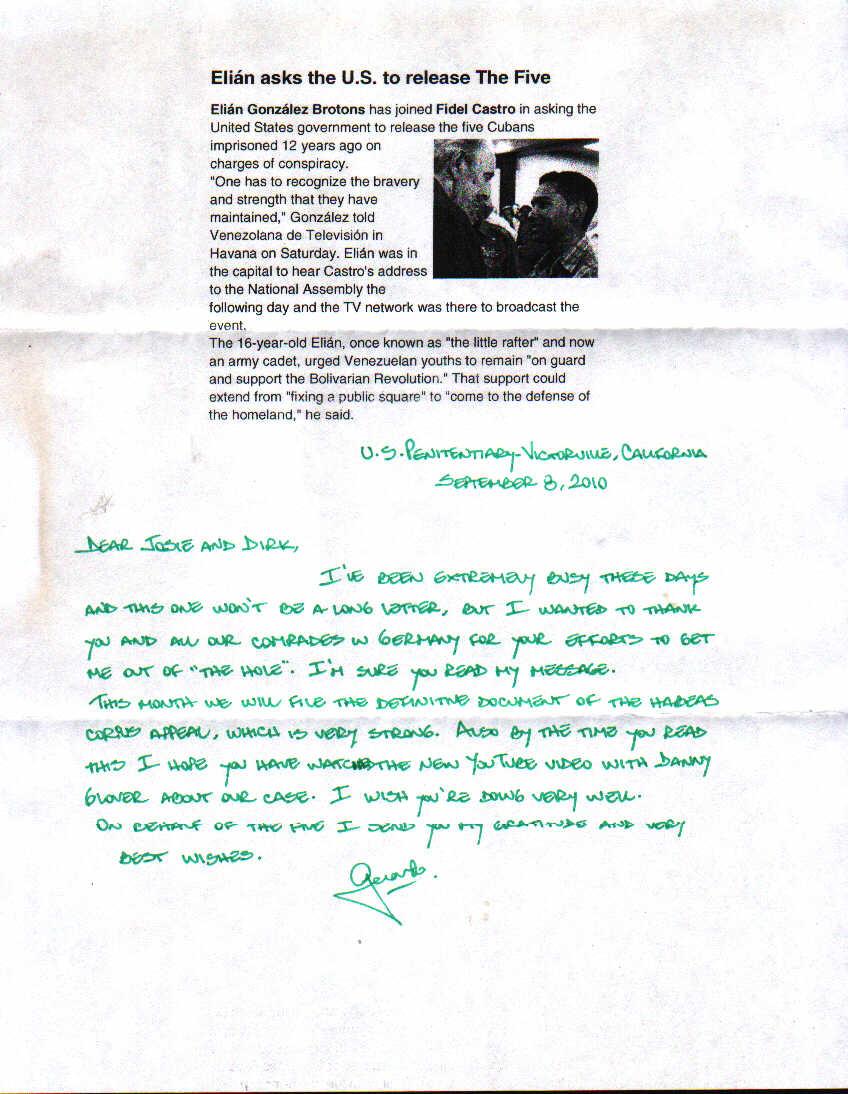 Elián asks the U.S. to release The Five
Elián González Brotons has joined Fidel Castro in asking the
United States government to release the five Cubans
imprisoned 12 years ago on
charges of conspiracy.
"One has to recognize the bravery
and strength that they have
maintained," González told
Venezolana de Televisión in
Havana on Saturday. Elián was in
the capital to hear Castro's address
to the National Assembly the
following day and the TV network was there to broadcast the
event.
The 16-year-old Elián, once known as "the little rafter" and now
an army cadet, urged Venezuelan youths to remain "on guard
and support the Bolivarian Revolution." That support could
extend from "fixing a public square" to "come to the defense of
the homeland," he said.
U.S. PENITENTIARY-VICTORVILLE, CALIFORNIA
SEPTEMBER 8, 2010
DEAR JOSIE AND DIRK,
I'VE BEEN EXTREMELY BUSY THESE DAYS
AND THIS ONE WON'T BE A LONG LETTER, BUT I WANTED TO THANK
YOU AND ALL OUR COMRADES IN GERMANY FOR YOUR EFFORTS TO GET
ME OUT OF "THE HOLE". I'M SURE YOU READ MY MESSAGE.
THIS MONTH WE WILL FILE THE DEFINITIVE DOCUMENT OF THE HABEAS
CORPUS APPEAL, WHICH IS VERY STRONG. ALSO BY THE TIME YOU READ
THIS I HOPE YOU HAVE WATCHED THE NEW YOUTUBE VIDEO WITH DANNY
GLOVER ABOUT OUR CASE. I WISH YOU'RE DOING VERY WELL.
ON BEHALF OF THE FIVE I SEND YOU MY GRATITUDE AND VERY
BEST WISHES.
Gerardo.